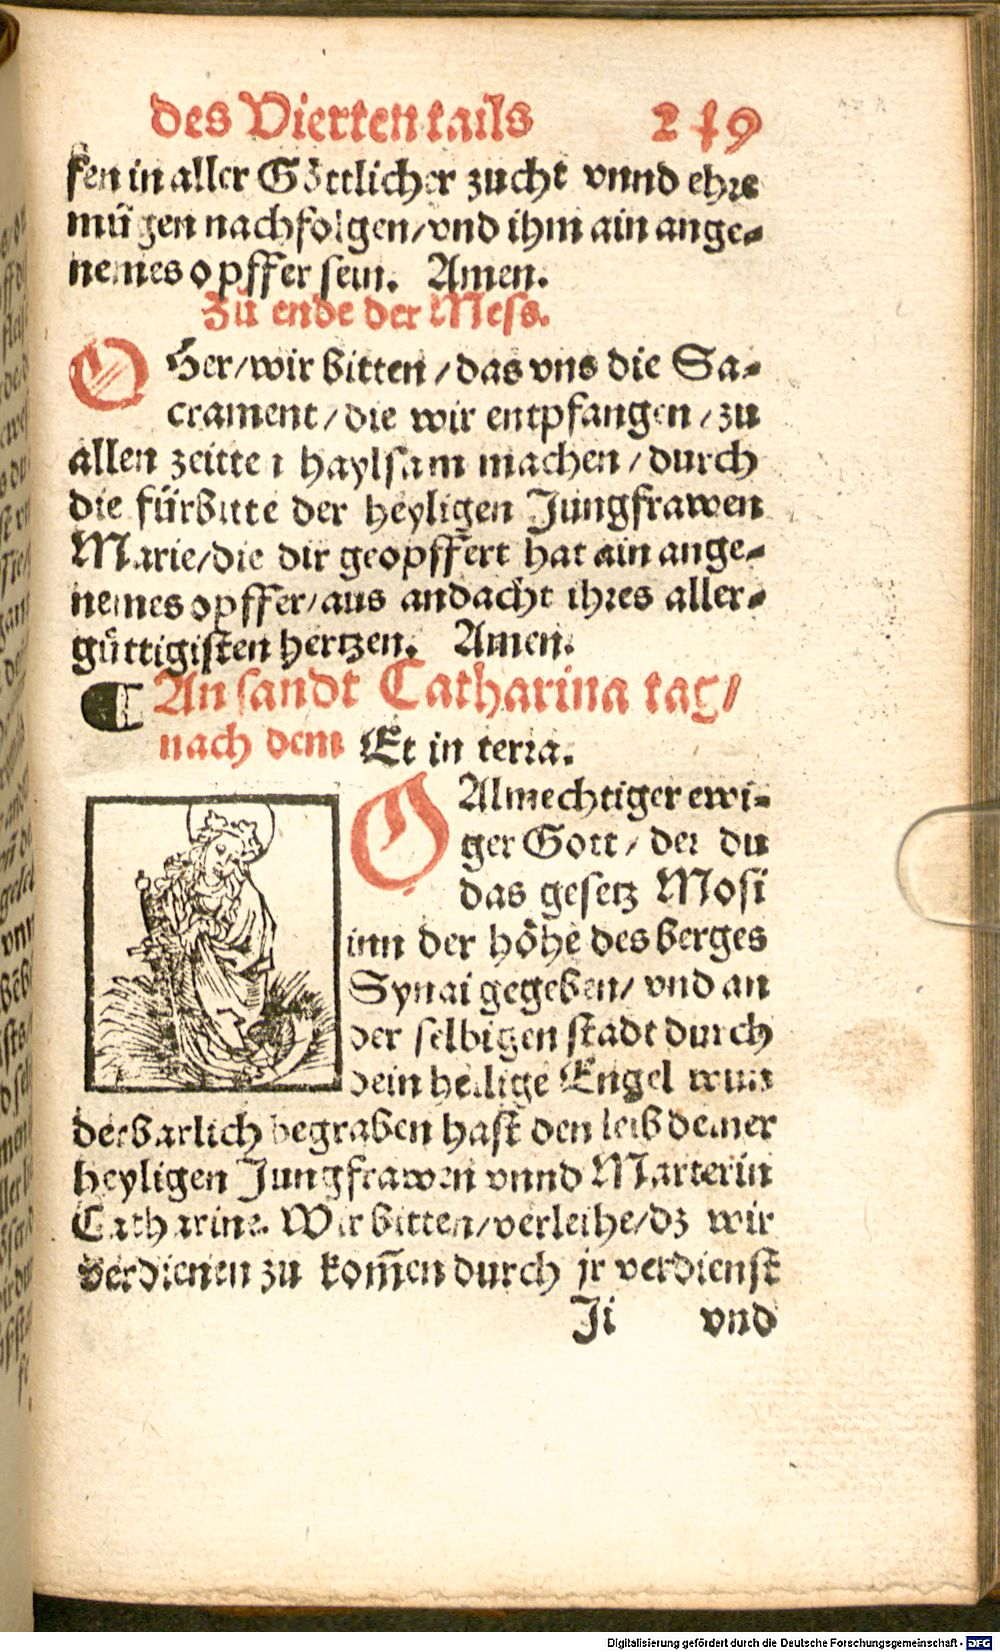 des Vierten tails 249
ken in aller Göttlicher zucht vnnd ehre
mügen nachfolgen/vnd ihm ain ange-
nemes opffer sein. Amen.
Zu ende der Mess.
O Her/wir bitten/das vns die Sa-
crament/die wir entpfangen/zu
allen zeitten haylsam machen/durch
die fürbitte der heyligen Jungfrawen
Marie/die dir geopffert hat ain ange-
nemes opffer/aus andacht ihres aller-
güttigisten hertzen. Amen.
¶ An sandt Catharina tag/
nach dem Et in terra.
O Almechtiger ewi-
ger Gott/der du
das gesetz Mosi
inn der höhe des berges
Synai gegeben/vnd an
der selbigen stadt durch
dein heilige Engel wun
derbarlich begraben hast den leib deiner
heyligen Jungfrawen vnnd Marterin
Catharine. Wir bitten/verleihe/dz wir
verdienen zu kom̄en durch jr verdienst
Ji vnd
Digitalisierung gefördert durch die Deutsche Forschungsgemeinschaft - DFG